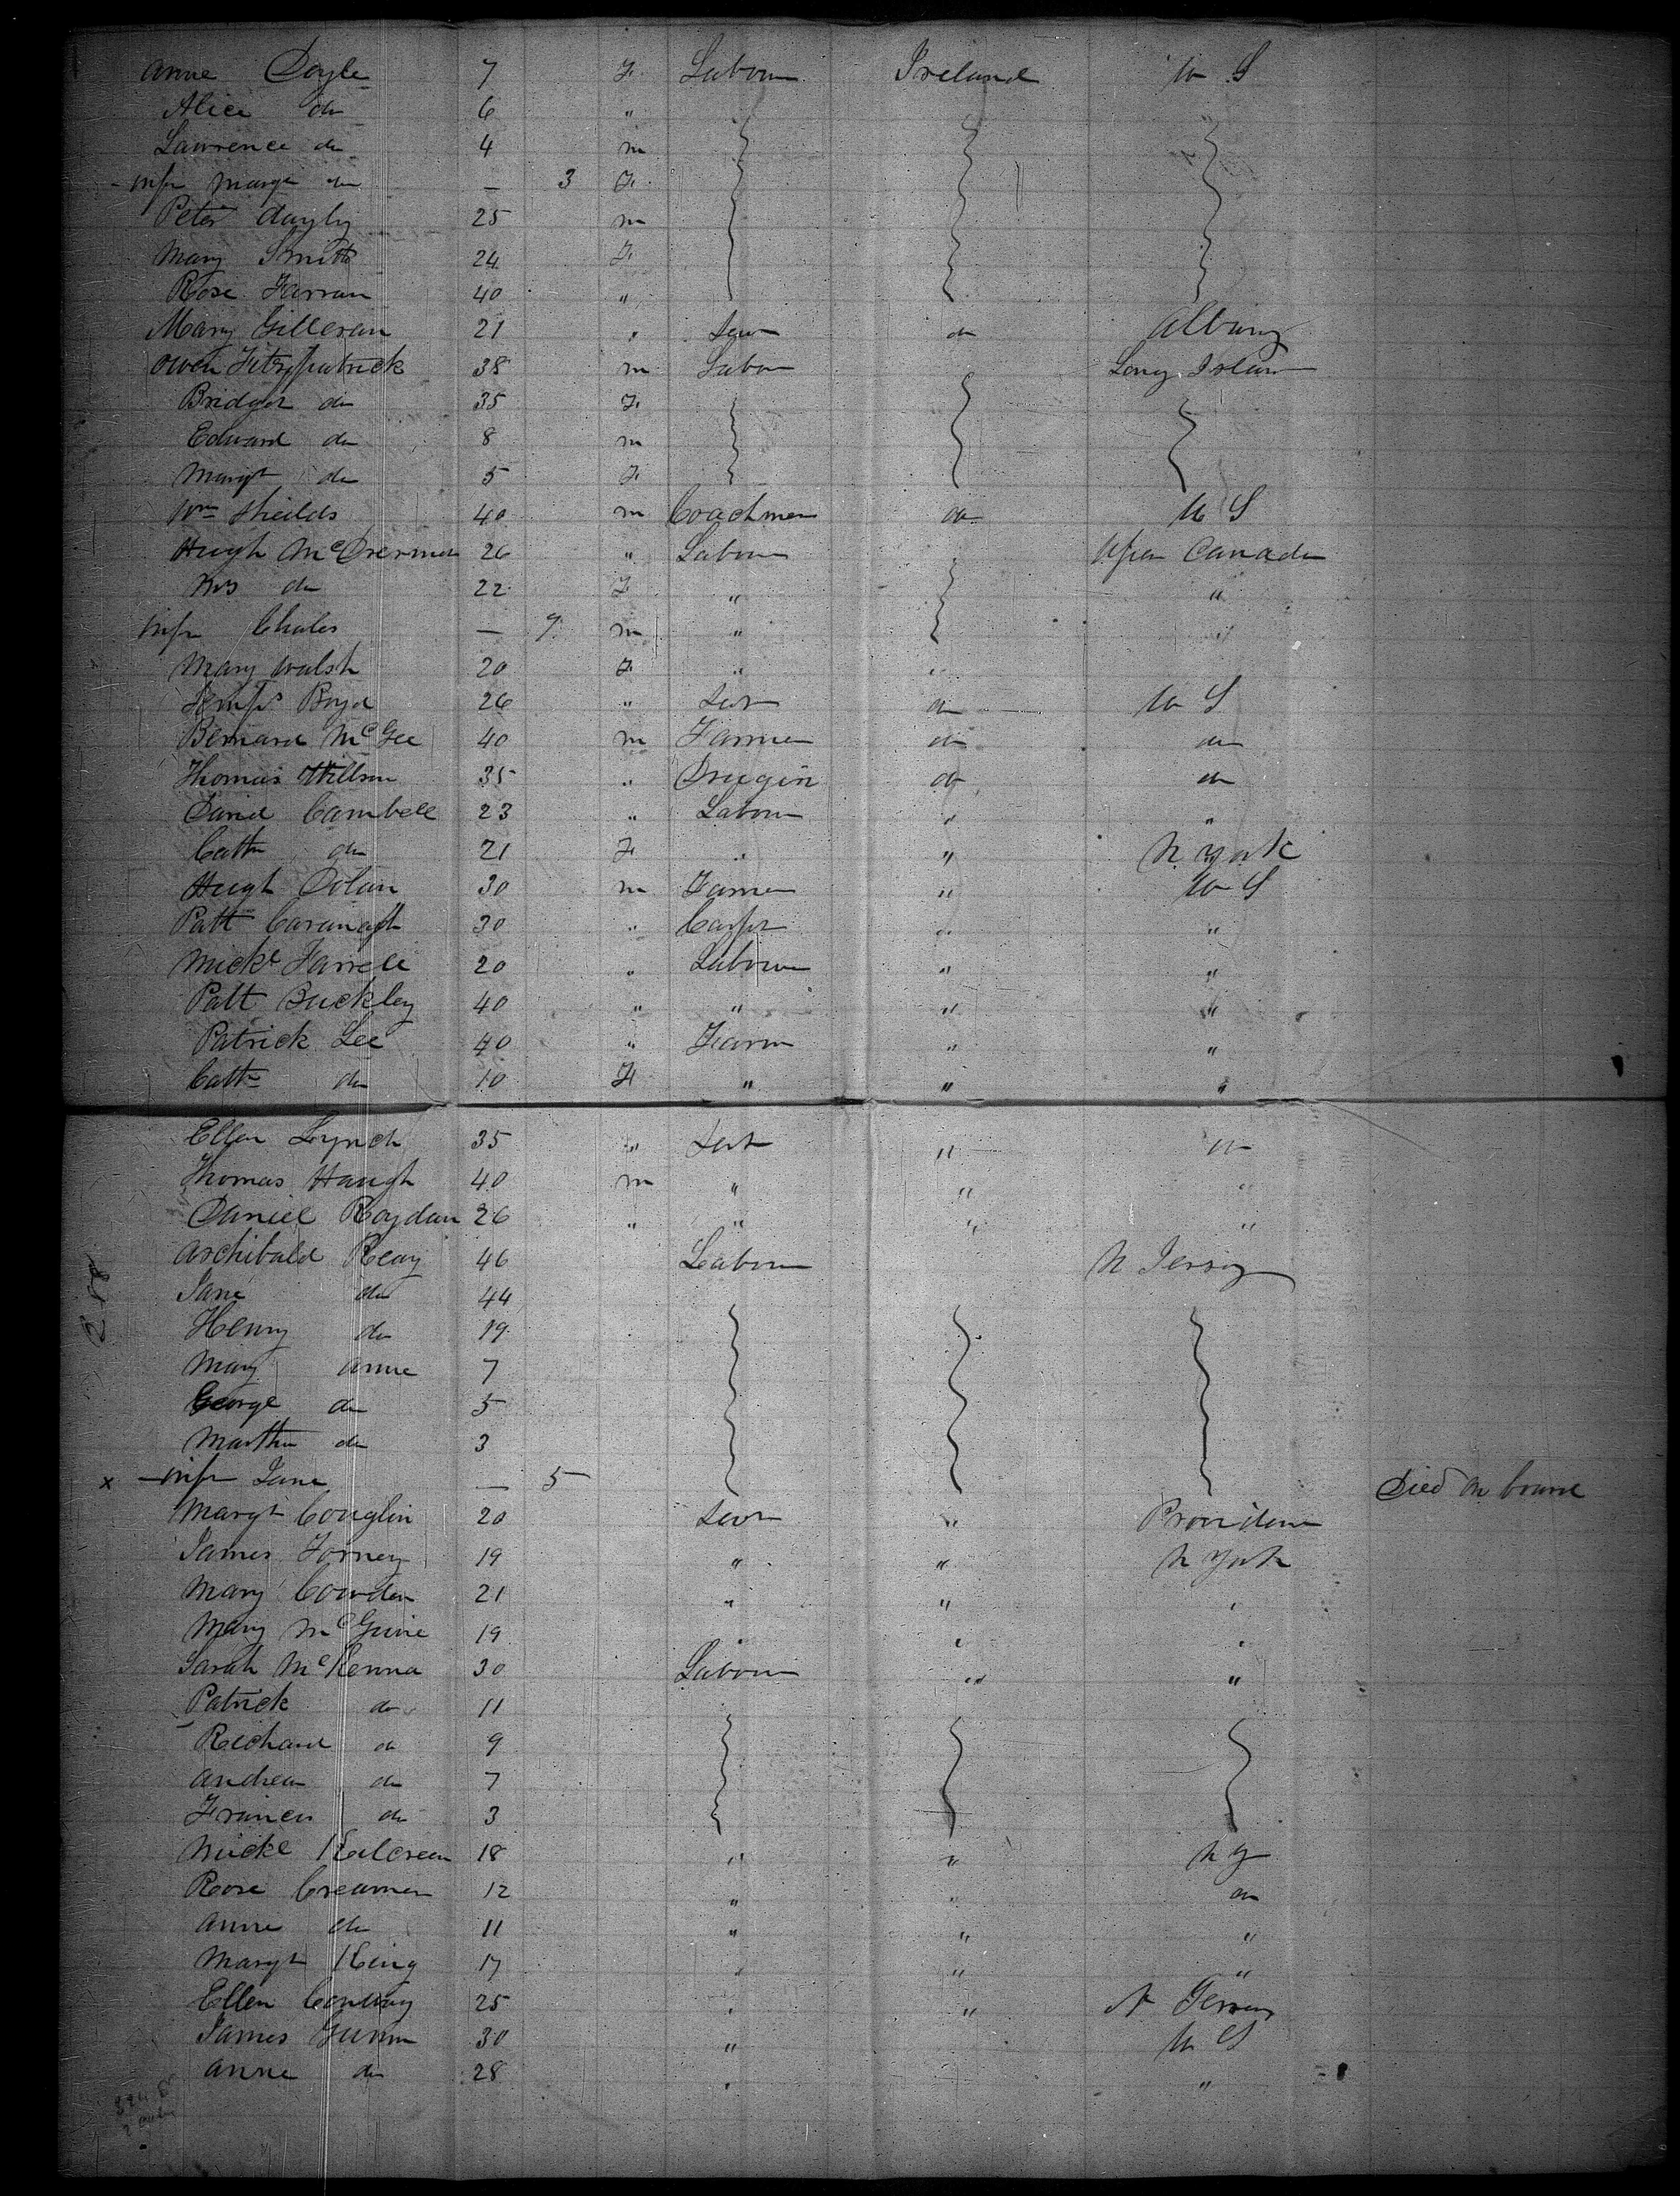 Anne Doyle 7 F. Labour Ireland U S
Alice do 6 "
Lawrence do 4 m
- Inft Margt do — 3 F.
Peter dayly 25 m
Mary Smith 24 F.
Rose Farran 40 "
Mary Gilleran 21 " Sert do Albany
Owen Fitzpatrick 38 m Labour Long Island
Bridget do 35 F.
Edward do 8 m
Margt do 5 F.
Wm Sheilds 40 m Coachman do U S
Hugh McDermot 26 " Labour Upper Canada
Mrs do 22 F " "
Inft Chales — 9 m " "
Mary Walsh 20 F " "
Boyd 26 " Sert do U S
Bernard McGee 40 m Farmer do do
Thomas Willson 35 " do do
David Cambell 23 " Labour " "
Cathe do 21 F " " N york
Hugh Dolan 30 m Farmer " U S
Patt Cavanagh 30 " Carptr " "
Mickl Farrell 20 " Labour " "
Patt Buckley 40 " " " "
Patrick Lee 40 " Farm " "
Cathe do 10 F " " "
Ellen Lynch 35 " Sert " "
Thomas Haugh 40 m " " "
Daniel Roydan 26 " " " "
Archibald Reay 46 Labour N Jersey
Jane do 44
Henry do 19
Mary anne 7
George do 5
Martha do 3
x - Inft Jane — 5 Died on board
Margt Couglin 20 Sert " Providence
James Forney 19 " " N York
Mary Cowden 21 " " "
Mary McGuire 19 " " "
Sarah McKenna 30 Labour " "
Patrick do 11
Richard do 9
Andrew do 7
Frances do 3
Mickl Kilcreen 18 " " N Y
Rose Creamer 12 " " do
Anne do 11 " " "
Margt King 17 " " "
Ellen Conway 25 " " N Jersey
James Gunn 30 " U S
Anne do 28 " "